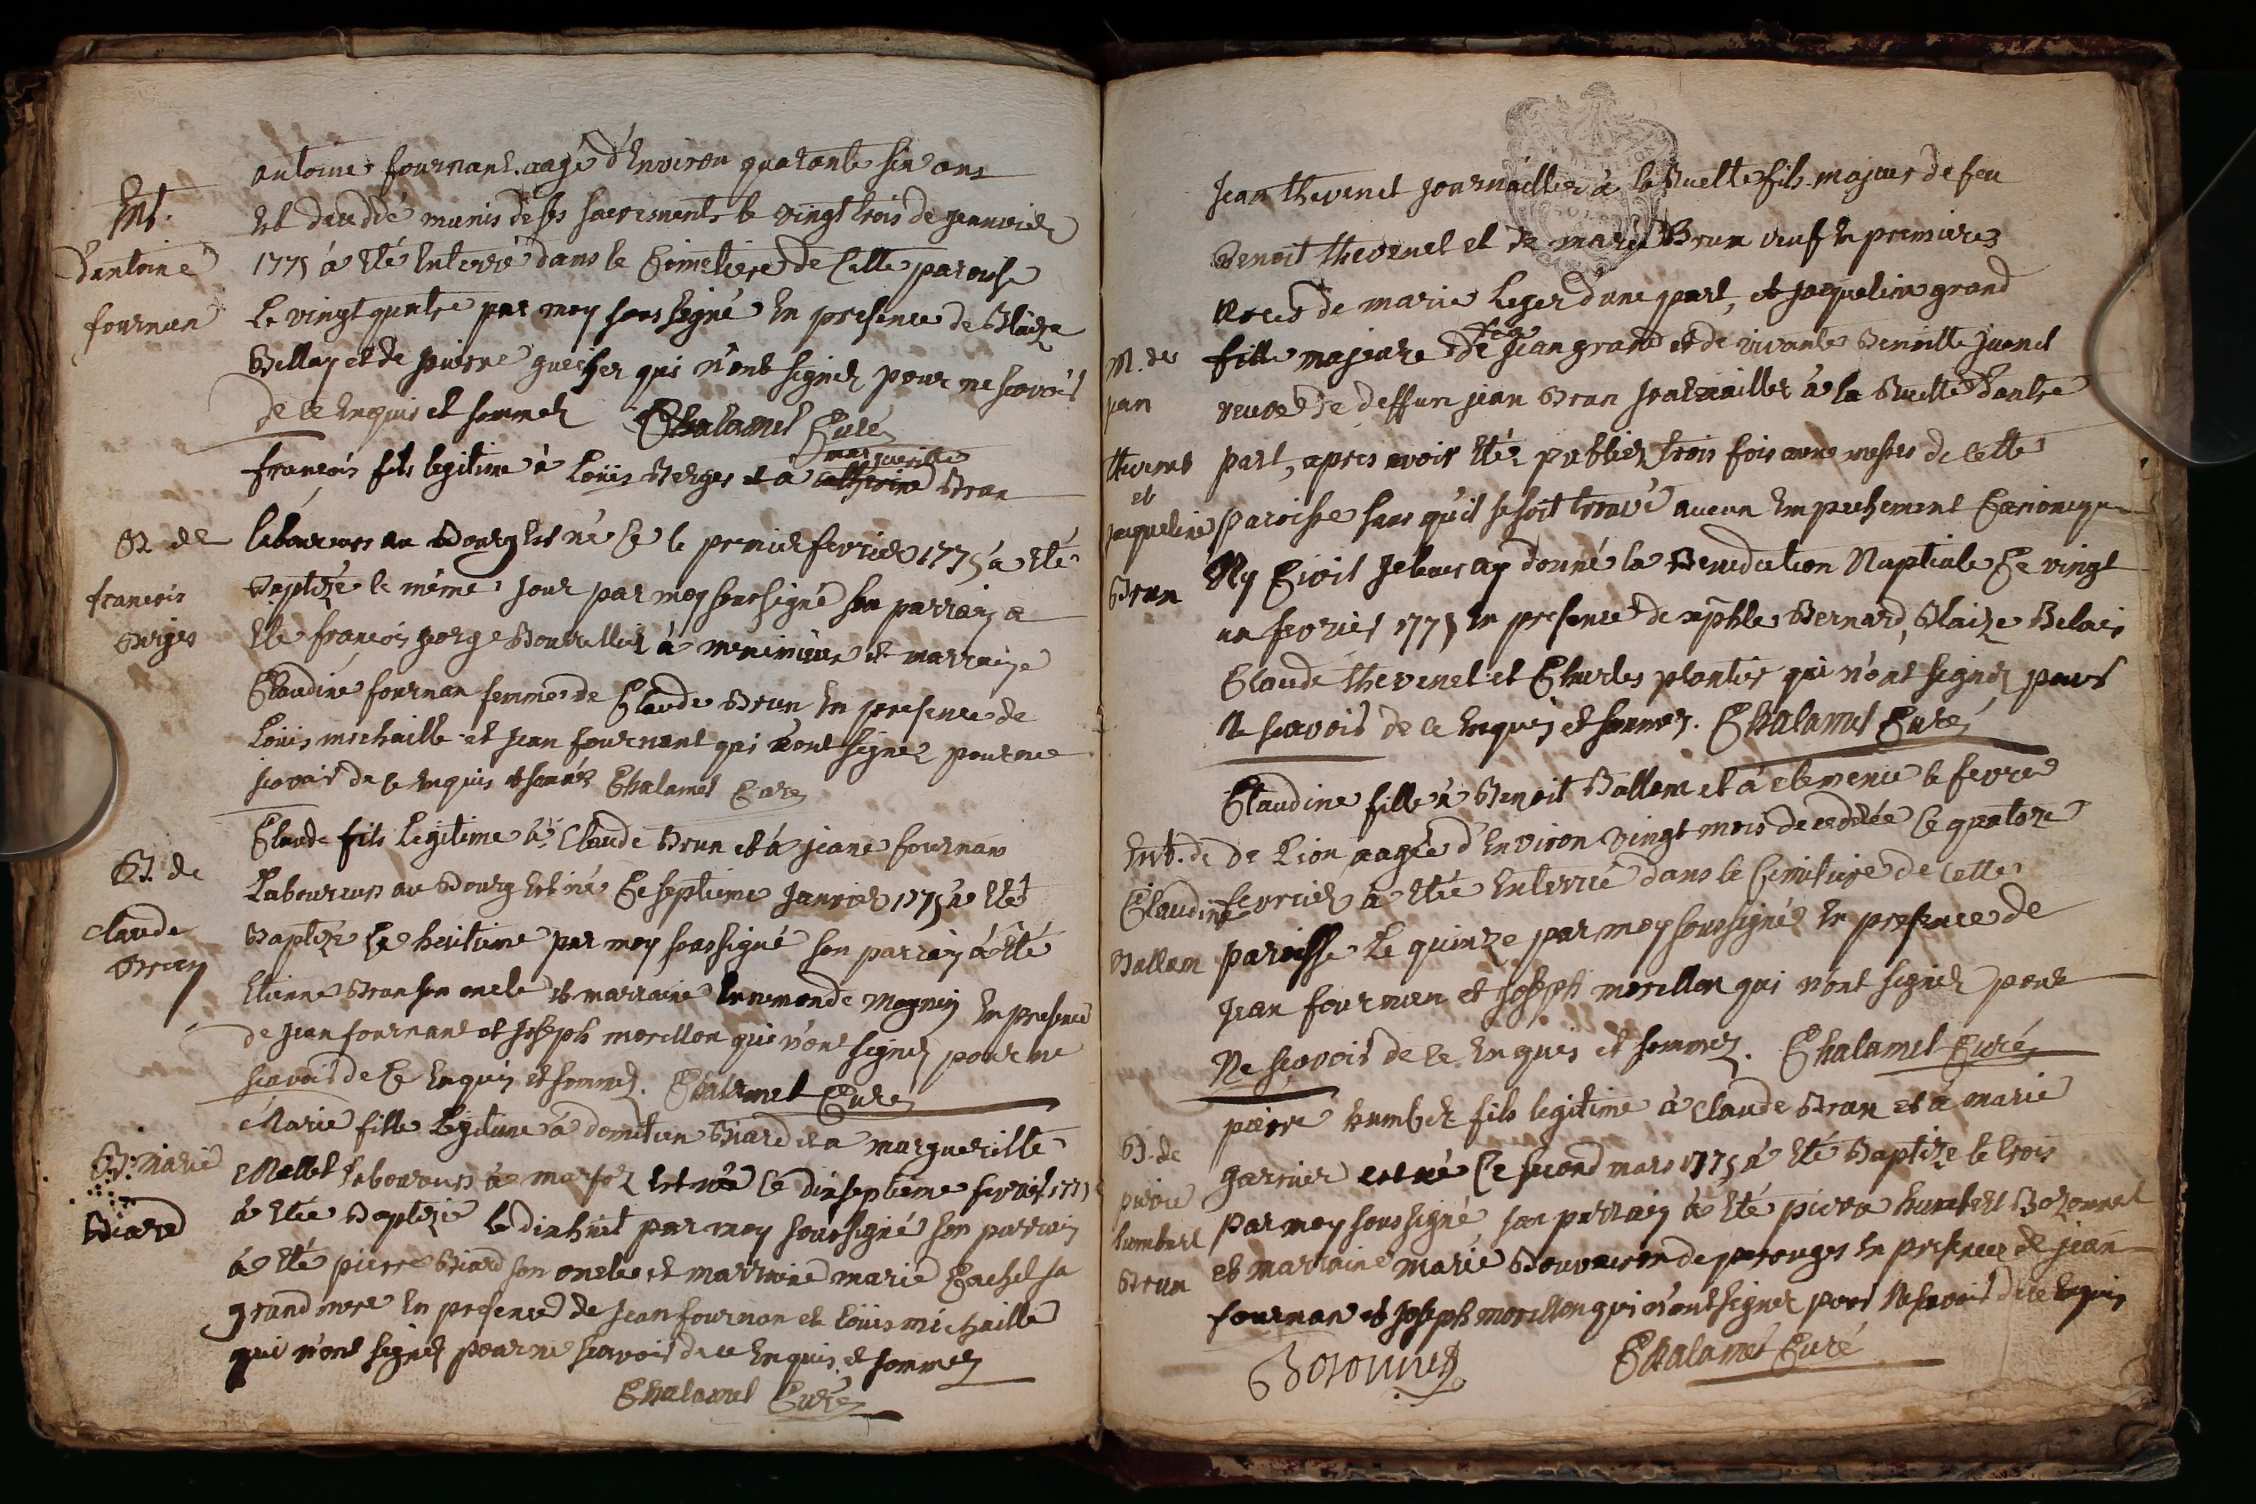 Ent.
d'antoine
fournan
antoine fournant aagé d'Environ quarante sin ans
Est decedé munis de ses sacrements le vingt trois de jeanvier
1775 a Eté Enterré dans le Cimetiere de Cette paroisse
Le vingt quatre par moy sous signé En presence de Blaize
Bellay et de pierre guecher qui n'ont signer pour ne scavoir
de ce Enquis et sommer Chalamel Curé
B. de
francois
Berges
francois fils legitime à Loüis Berges et a catherine marguerite Brun
laboureurs au Bourg Est né Ce le premier fevrier 1775 a Eté
Baptizé le même jour par moy soussigné son parrain a
Eté francois gorge Bourrellier à meximieux et marraine
Claudine fournan femme de Claude Brun En presence de
Loüis michaille et jean fournant qui n'ont signer pour ne
scavoir de ce Enquis et sommer Chalamel Curé
B. de
claude
Brun
Claude fils Legitime à Claude Brun et à jeane fournan
Laboureurs au Bourg Est né Ce septieme Janvier 1775 a Eté
Baptizé Le huitieme par moy soussigné son parrain a Eté
Etienne Brun son oncle et marraine Ennemonde Magnin En presence
de jean fournant et joseph morellon qui n'ont signer pour ne
scavoir de Ce Enquis et sommer. Chalamel Curé
B. Marie
Biard
Marie fille Legitime à domitien Biard et a margueritte
Mallet laboureurs à Est née Ce dixseptieme fevrier 1775
a Etée Baptizée le dixhuit par moy soussigné son parrain
a Eté pierre Biard son oncle et marraine marie Cachet sa
grand mere En presence de jean fournan et Loüis michaille
qui n'ont signer pour ne scavoir de ce Enquis et sommer
Chalamel Curé
M. de
jean
thevenet
et
jaqueline
Brun
Jean thevenet journaillier à la Ruette fils majeur de feu
Benoit thevenet et de marie Brun veuf En premieres
noces de marie Leger d'une part, et jaqueline grand
fille majeure de feu jean grand et de vivante Benoitte juenet
veuve de deffun jean Brun journaillier à la Ruette d'autre
part, apres avoir Eté publiez trois fois aux messes de cette
paroisse sans qu'il se soit trouvé aucun Empechement Canonique
Ny Civil je leur ay donné la Benediction Nuptiale Ce vingt
un fevrier 1775 En presence de Bernard, Blaize Belais
Claude thevenet et Charles plantier qui n'ont signer pour
Ne scavoir de ce Enquis et sommer. Chalamel Curé
Ent. de
Claudine
Ballem
Claudine fille à Benoit Ballem et à clemence le fevre
De Lion aagée d'Environ vingt mois decedée Ce quatorze
fevrier a Etée Enterrée dans le Cimetiere de Cette
paroisse Le quinze par moy soussigné En presence de
Jean fournan et joseph morellon qui n'ont signer pour
Ne scavoir de ce Enquis et sommer. Chalamel Curé
B. de
pierre
humbert
Brun
pierre humber fils legitime à claude Brun et à marie
garnier est né Ce second mars 1775 a Eté Baptizé le trois
par moy sous signé son parrain a Eté pierre humbert Bozonnet
et marraine marie Bouveiron de perouges En presence de jean
fournan et joseph morellon qui n'ont signer pour Ne scavoir de ce Enquis
Bozonnet Chalamel Curé